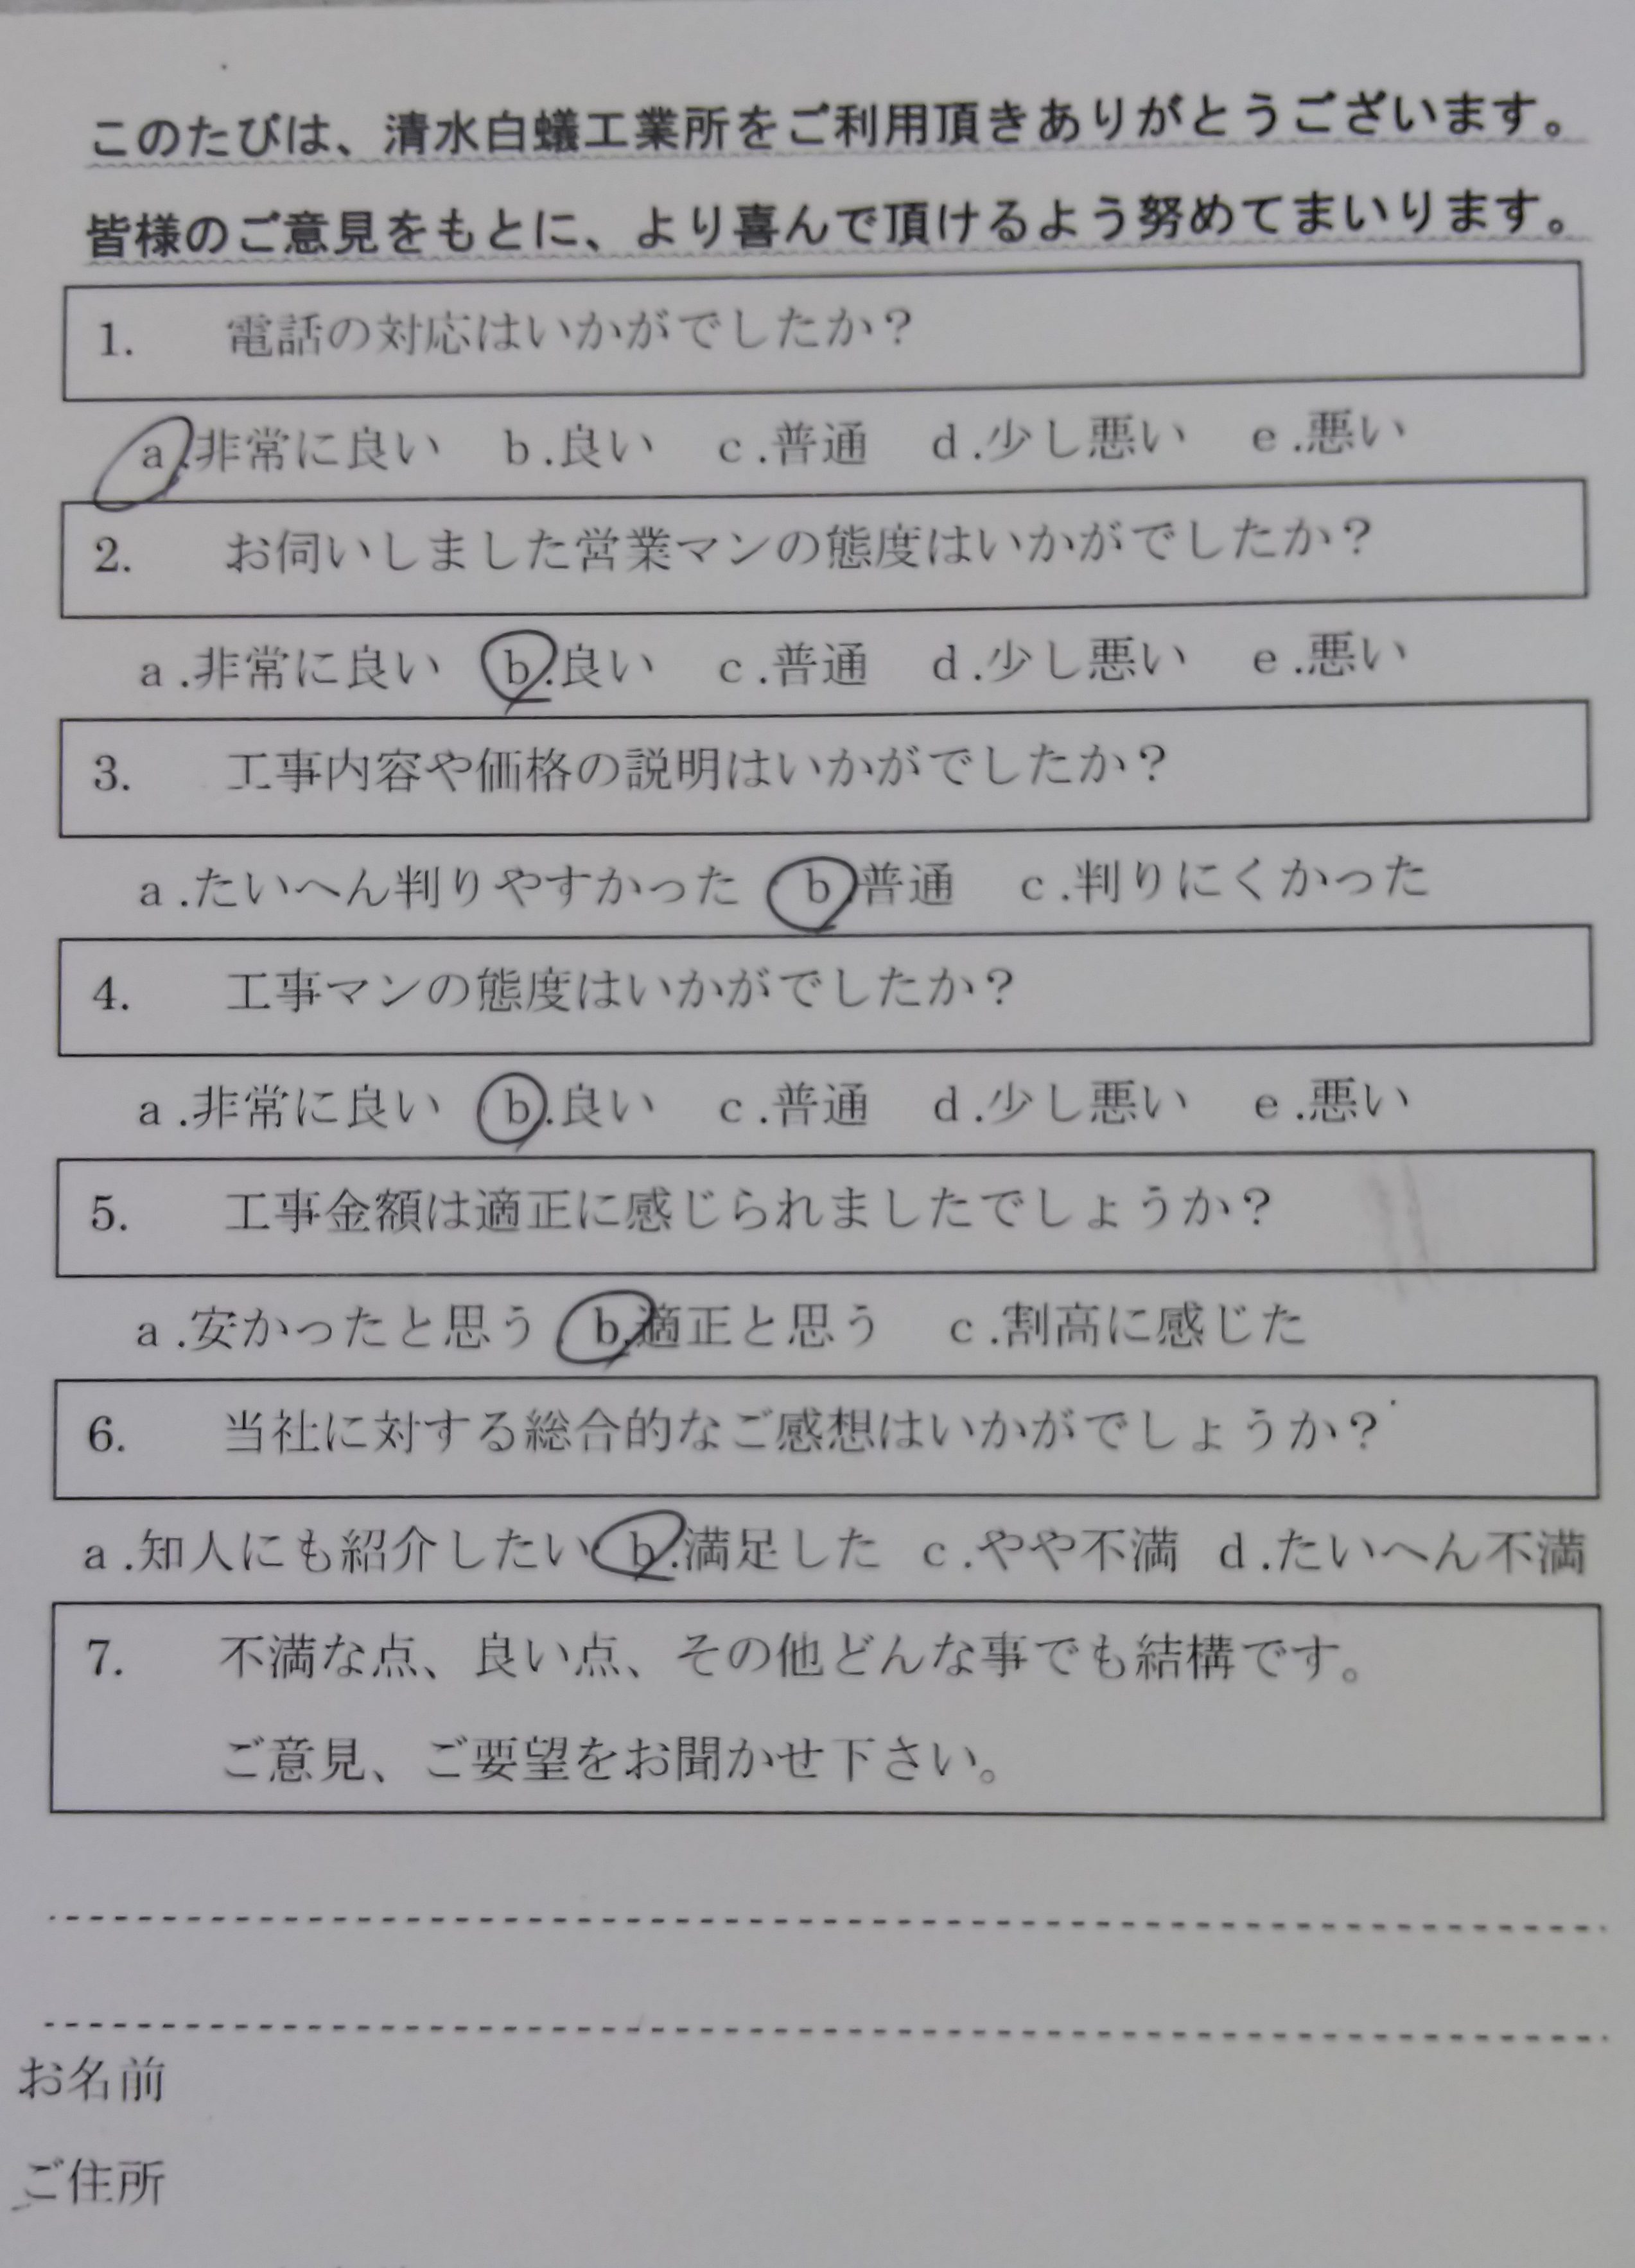 このたびは、清水白蟻工業所をご利用頂きありがとうございます。
皆様のご意見をもとに、より喜んで頂けるよう努めてまいります。
1. 電話の対応はいかがでしたか？
a.非常に良い b.良い c.普通 d.少し悪い e.悪い
2. お伺いしました営業マンの態度はいかがでしたか？
a.非常に良い b.良い c.普通 d.少し悪い e.悪い
3. 工事内容や価格の説明はいかがでしたか？
a.たいへん判りやすかった b.普通 c.判りにくかった
4. 工事マンの態度はいかがでしたか？
a.非常に良い b.良い c.普通 d.少し悪い e.悪い
5. 工事金額は適正に感じられましたでしょうか？
a.安かったと思う b.適正と思う c.割高に感じた
6. 当社に対する総合的なご感想はいかがでしょうか？
a.知人にも紹介したい b.満足した c.やや不満 d.たいへん不満
7. 不満な点、良い点、その他どんな事でも結構です。
ご意見、ご要望をお聞かせ下さい。
お名前
ご住所